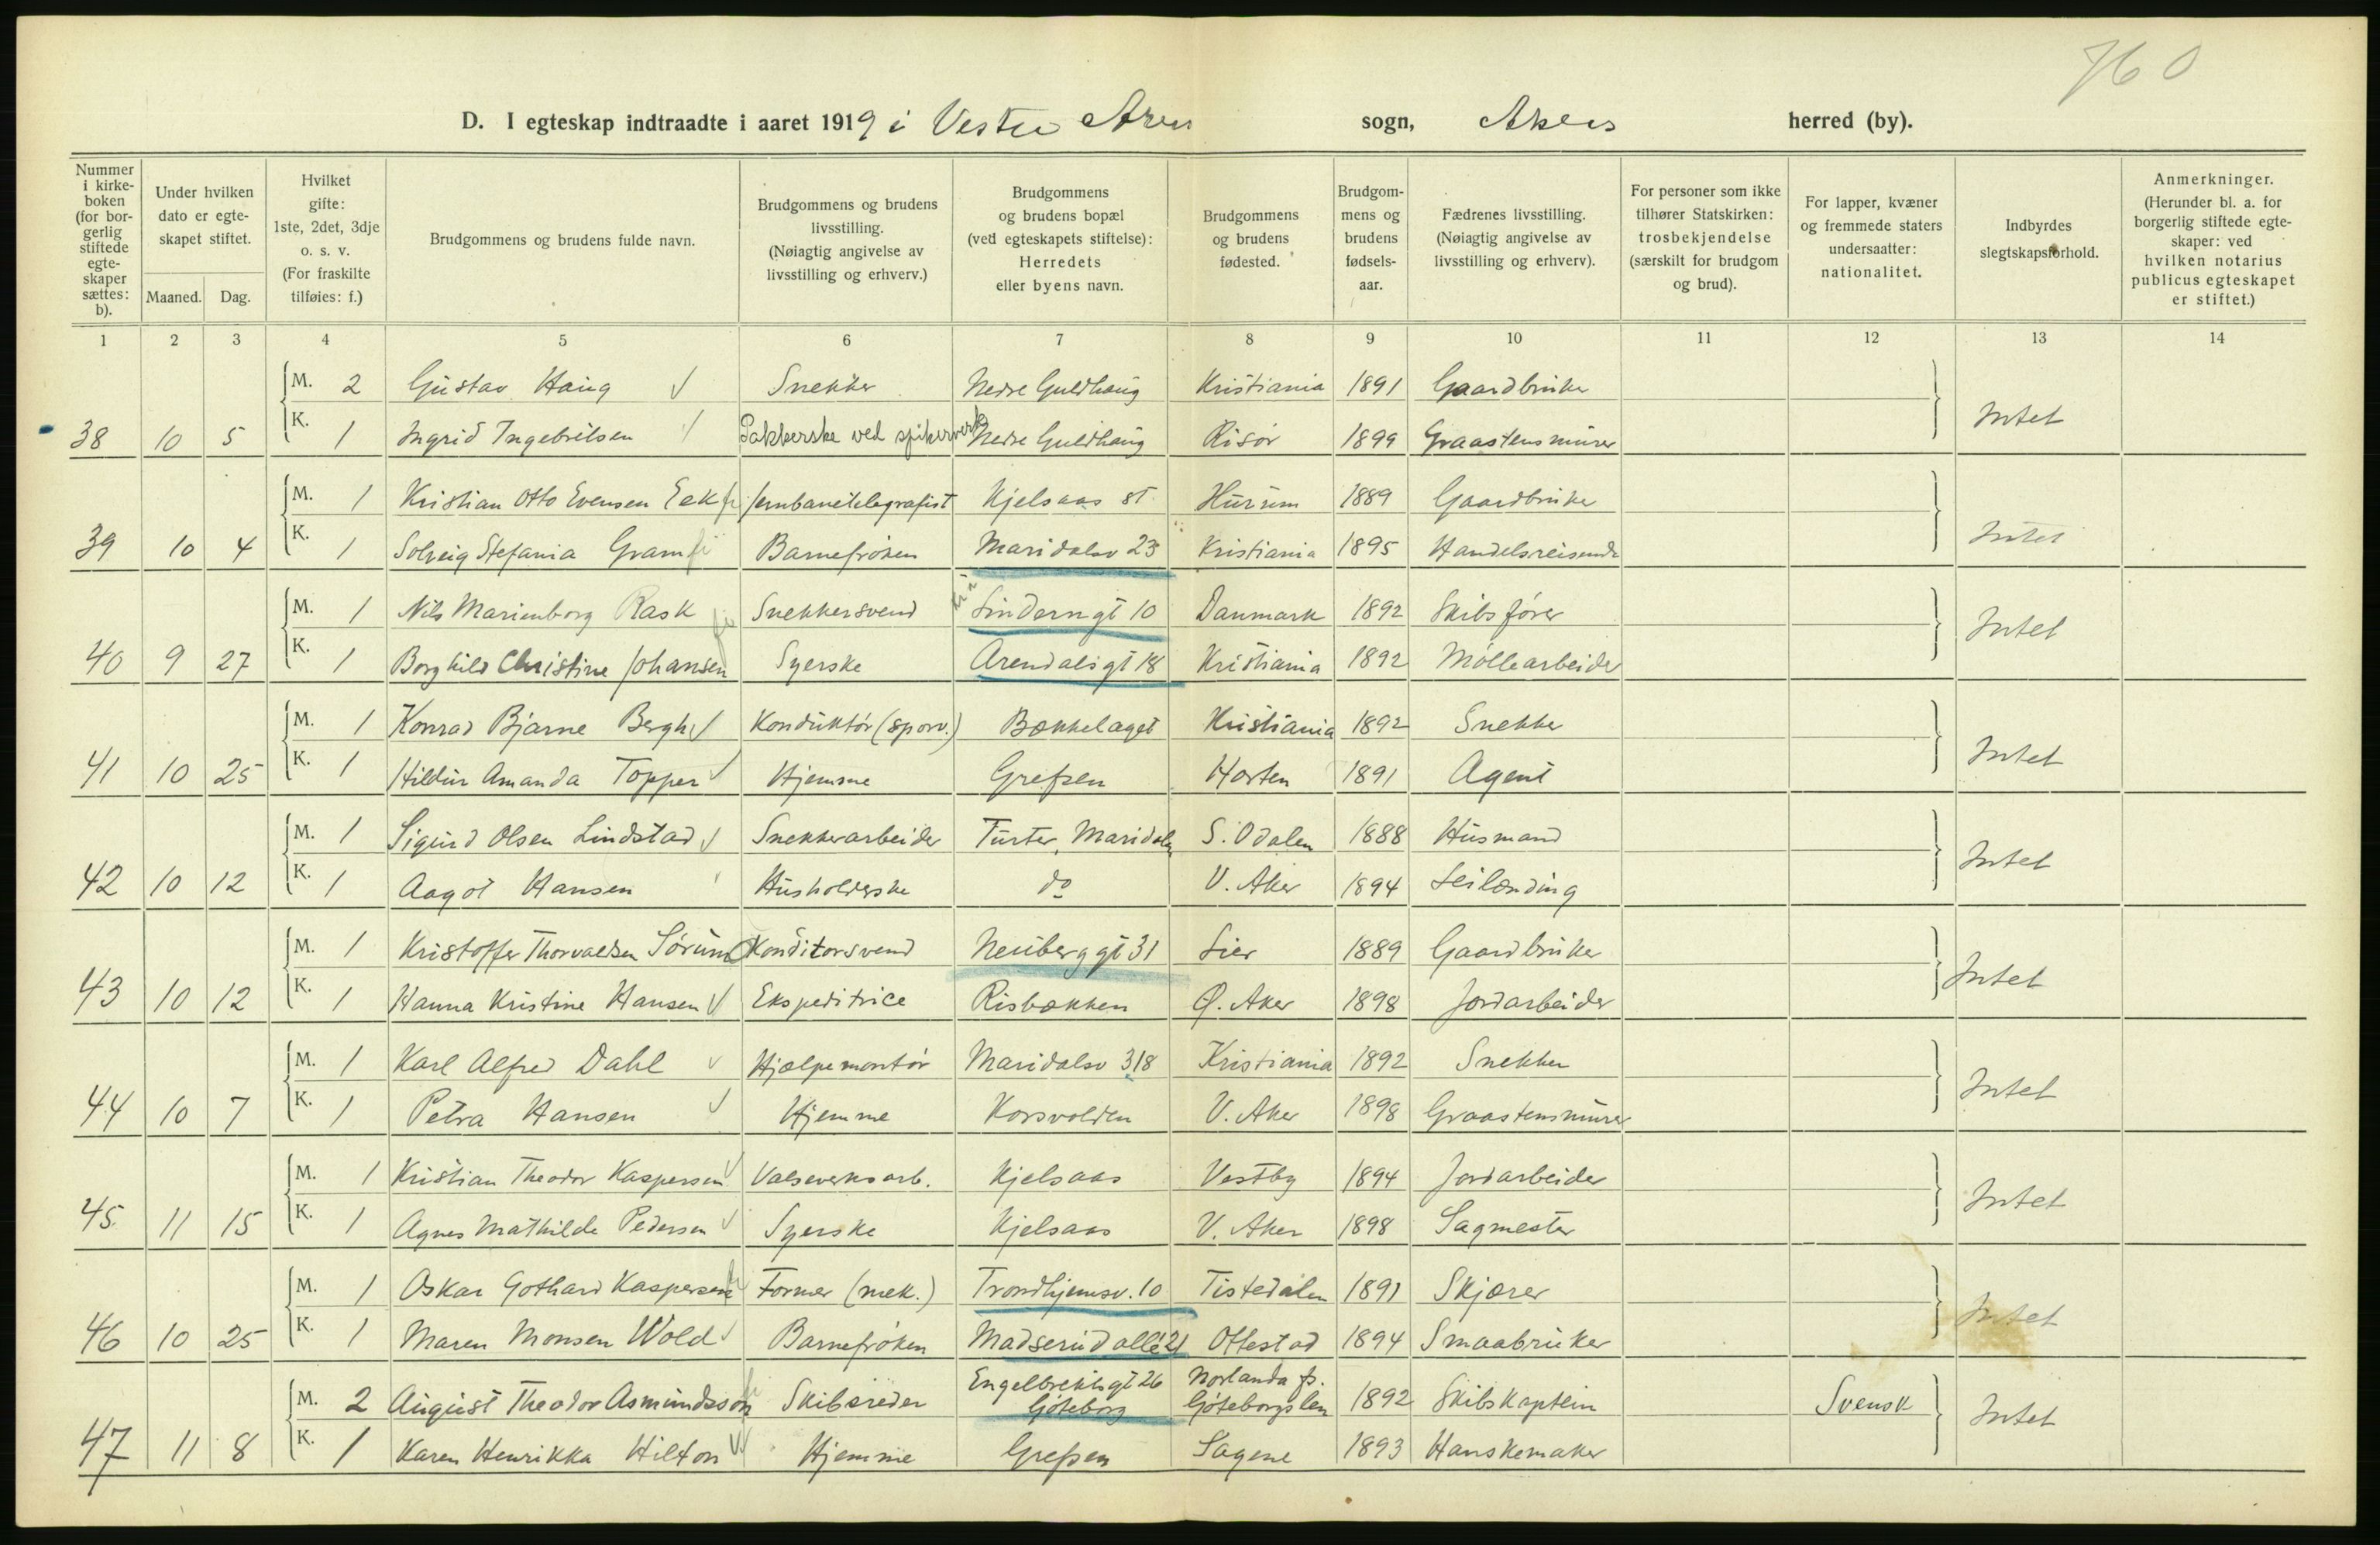 760
D. I egteskap indtraadte i aaret 1919 i Vestre Aker sogn, Akers herred (by).
Nummer i kirke-boken (for bor-gerlig stiftede egte-skaper sættes: b).
Under hvilken dato er egte-skapet stiftet.
Maaned. Dag.
Hvilket gifte: 1ste, 2det, 3dje o. s. v. (For fraskilte tilføies: f.)
Brudgommens og brudens fulde navn.
Brudgommens og brudens livsstilling. (Nøiagtig angivelse av livsstilling og erhverv.)
Brudgommens og brudens bopæl (ved egteskapets stiftelse): Herredets eller byens navn.
Brudgommens og brudens fødested.
Brudgom-mens og brudens fødsels-aar.
Fædrenes livsstilling. (Nøiagtig angivelse av livsstilling og erhverv).
For personer som ikke tilhører Statskirken: trosbekjendelse (særskilt for brudgom og brud).
For lapper, kvæner og fremmede staters undersaatter: nationalitet.
Indbyrdes slegtskapsforhold.
Anmerkninger. (Herunder bl. a. for borgerlig stiftede egte-skaper: ved hvilken notarius publicus egteskapet er stiftet.)
1 2 3 4 5 6 7 8 9 10 11 12 13 14
M. 2 Gustav Haug Snekker Nedre Guldhaug Kristiania 1891 Gaardbruker
38 10 5 K. 1 Ingrid Ingebrilsen Pakkerske ved spikerverk Nedre Guldhaug Risör 1899 Graastensmurer Intet
M. 1 Kristian Otto Evensen Eek Jernbanetelegrafist Kjelsaas st. Hurum 1889 Gaardbruker
39 10 4 K. 1 Solveig Stefania Gram Barnefröken Maridalsv 23 Kristiania 1895 Handelsreisende Intet
M. 1 Nils Marienborg Rask Snekkersvend Linderngt 10 Danmark 1892 Skibsförer
40 9 27 K. 1 Borghild Christine Johansen Syerske Arendalsgt 18 Kristiania 1892 Möllearbeider Intet
M. 1 Konrad Bjarne Bergh Konduktör (sporv.) Bækkelaget Kristiania 1892 Snekker
41 10 25 K. 1 Hildur Amanda Topper Hjemme Grefsen Horten 1891 Agent Intet
M. 1 Sigurd Olsen Lindstad Snekkerarbeider Turter, Maridalen S. Odalen 1888 Husmand
42 10 12 K. 1 Aagot Hansen Husholderske do V. Aker 1894 Leilænding Intet
M. 1 Kristoffer Thorvaldsen Sörum Konditorsvend Neuberggt 31 Lier 1889 Gaardbruker
43 10 12 K. 1 Hanna Kristine Hansen Ekspeditrice Risbækken Ø. Aker 1898 Jordarbeider Intet
M. 1 Karl Alfred Dahl Hjælpemontör Maridalsv 318 Kristiania 1892 Snekker
44 10 7 K. 1 Petra Hansen Hjemme Korsvolden V. Aker 1898 Graastensmurer Intet
M. 1 Kristian Theodor Kaspersen Valseverksarb. Kjelsaas Vestby 1894 Jordarbeider
45 11 15 K. 1 Agnes Mathilde Pedersen Syerske Kjelsaas V. Aker 1898 Sagmester Intet
M. 1 Oskar Gothard Kaspersen Former (mek.) Trondhjemsv. 10 Tistedalen 1891 Skjærer
46 10 25 K. 1 Maren Monsen Wold Barnefröken Madserud allé 21 Ottestad 1894 Smaabruker Intet
M. 2 August Theodor Asmundsson Skibsreder Engelbrektsgt 26 Göteborg Norlanda fs. Göteborgs len 1892 Skibskaptein Svensk
47 11 8 K. 1 Karen Henrikka Hilton Hjemme Grefsen Sagene 1893 Hanskemaker Intet